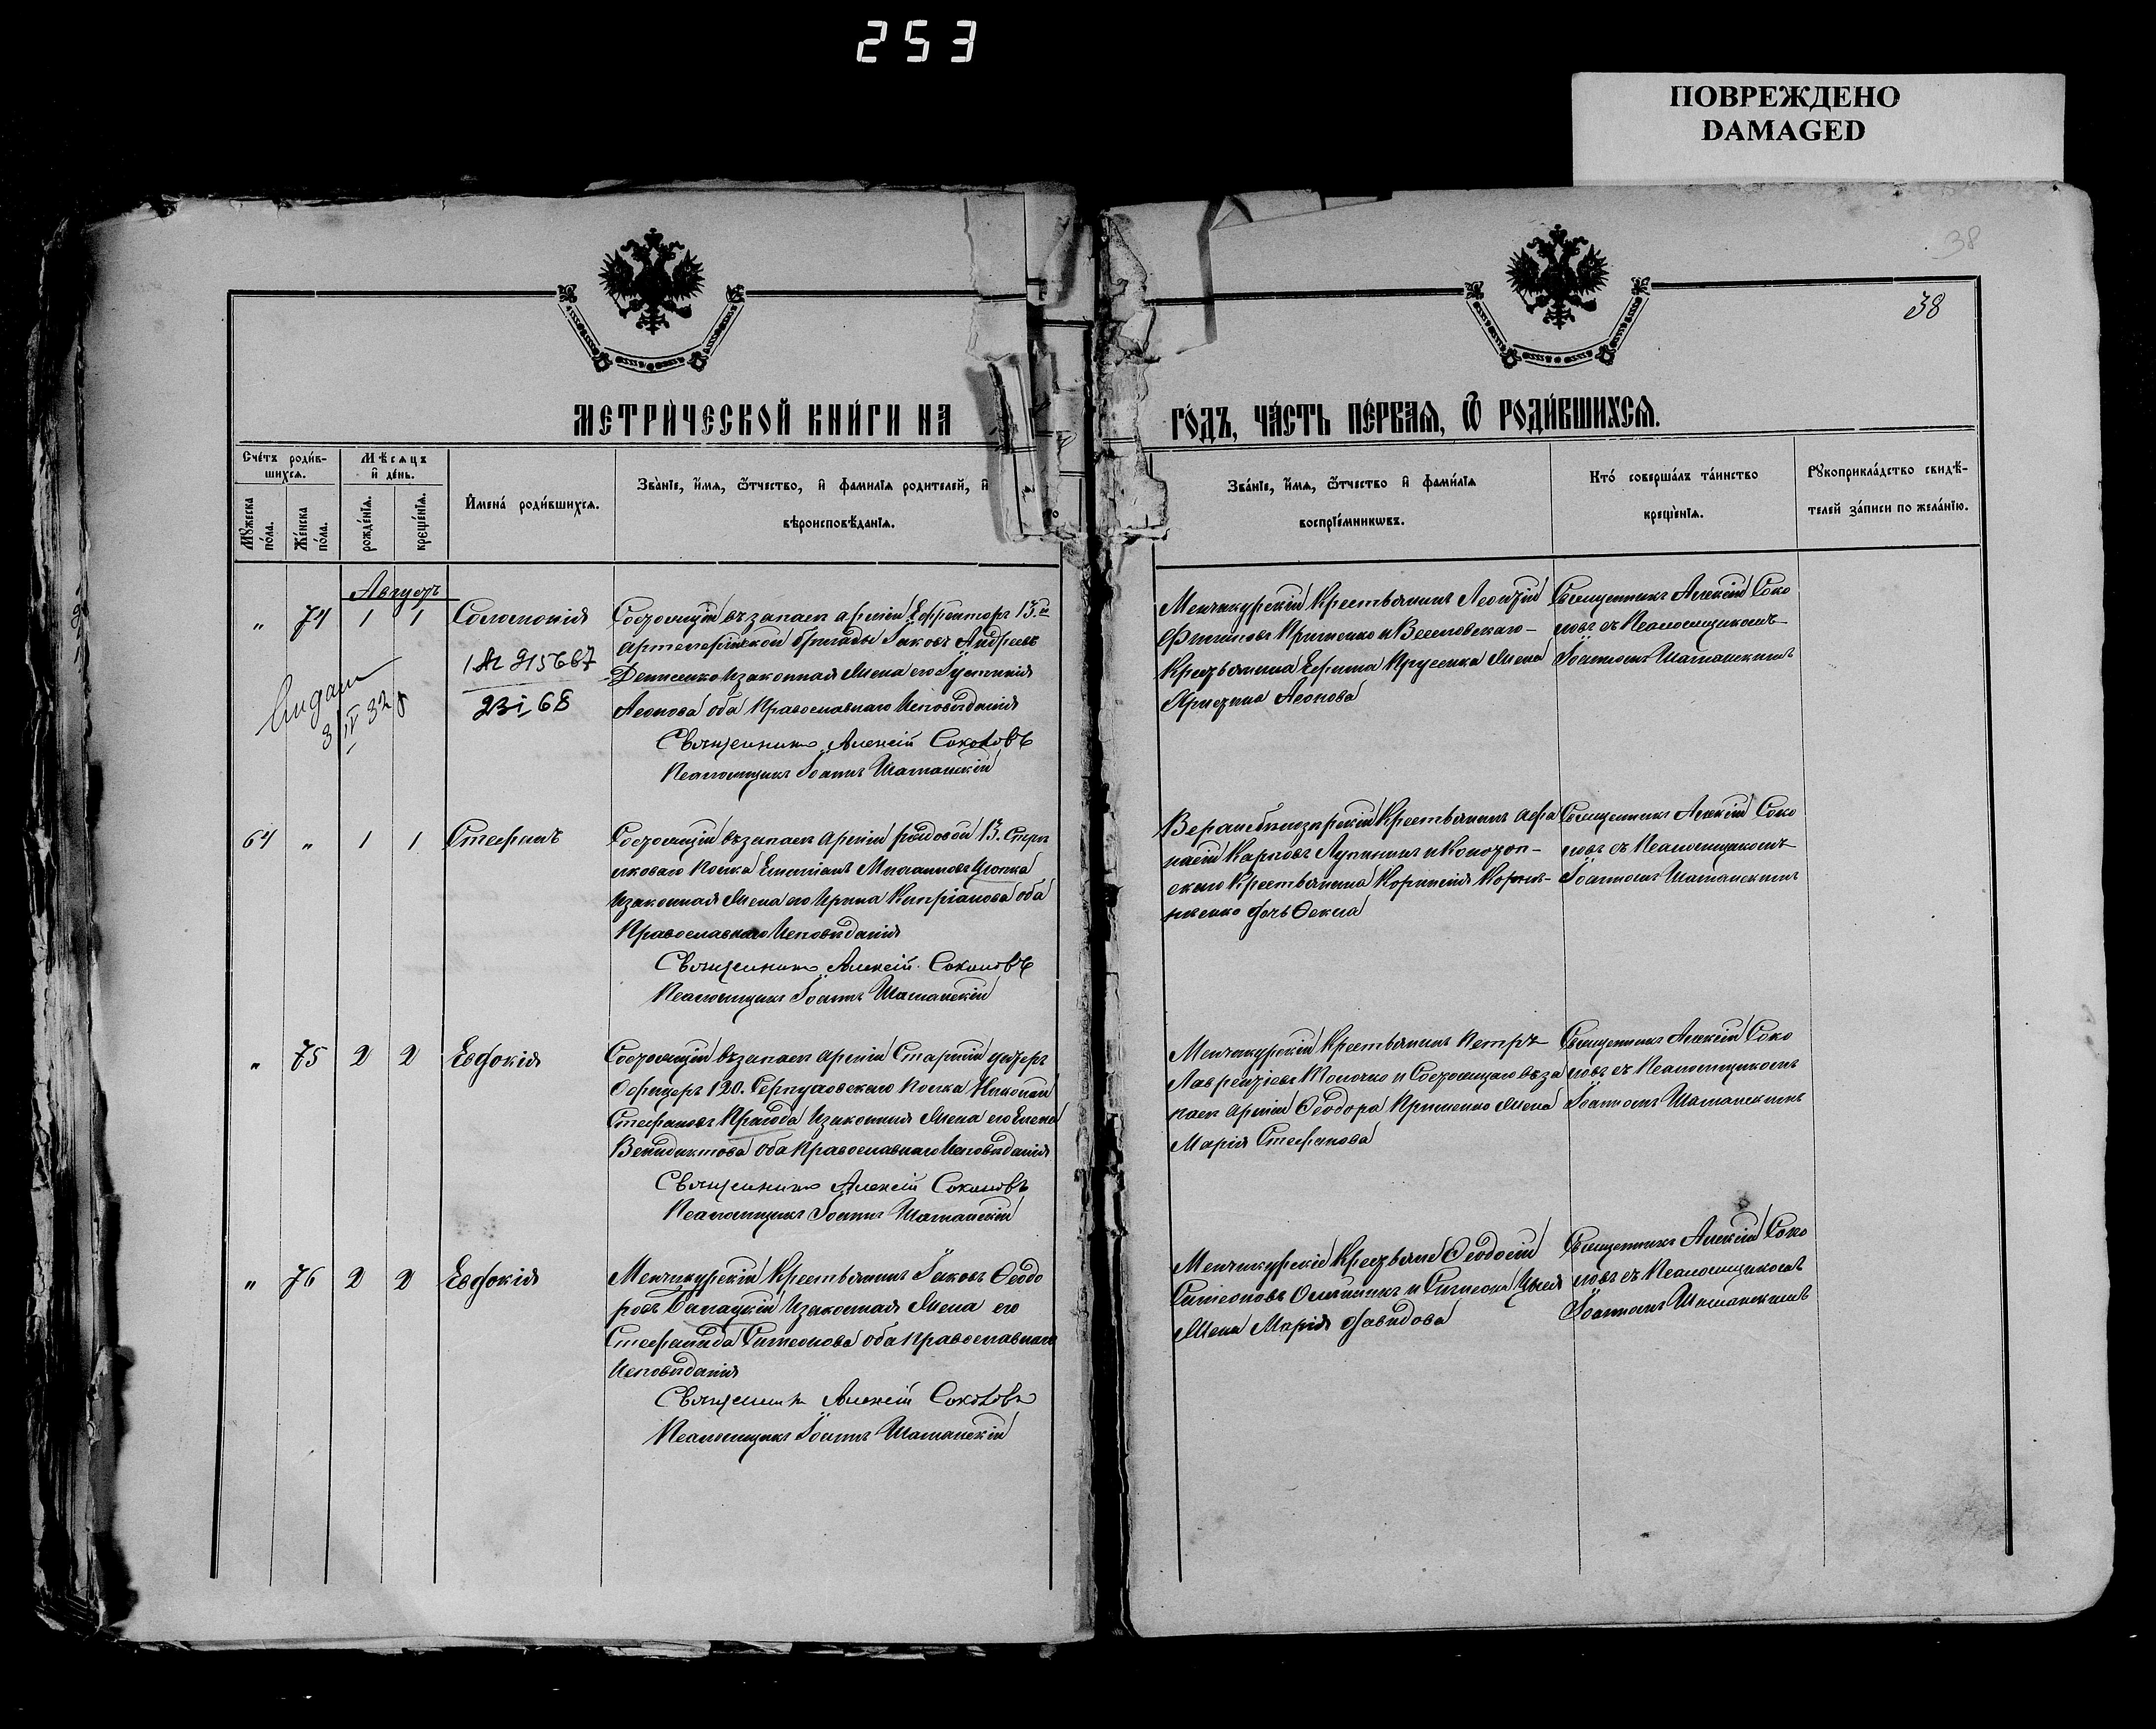 253
ПОВРЕЖДЕНО
DAMAGED
38
38
МЕТРИ́ЧЕСКОЙ КНИ́ГИ НА
ГО́ДЪ, ЧА́СТЬ ПЕ́РВАЯ, Ѿ РОДИ́ВШИХСЯ.
Сче́тъ роди́в-
шихся.
Мѣсяцъ
и де́нь.
Мꙋжеска
по́ла.
Же́нска
по́ла.
рожде́нїя.
креще́нїя.
Имена́ роди́вшихся.
Зва́нїе, и́мя, ѻ́тчество, и фамилїя родителей, и
вѣроисповѣ́данїя.
Зва́нїе, и́мя, ѻ́тчество и фами́лїя
воспрїе́мникωвъ.
Кто́ соверша́лъ та́инство
креще́нїя.
Рꙋкоприкла́дство свидѣ́-
телей за́писи по жела́нїю.
Августъ
" 74 1 1 Соломонія
1 АГ 215667
23 i 68
3 IV 32
Состоящій въ запасѣ арміи Ефрейторъ 13.й
артилерійской бригады Іаковъ Андреевъ
Денисенко и законная жена его Іустинія
Леонова оба Православнаго Исповѣданія
Священникъ Алексій Соколовъ
Псаломщикъ Іоаннъ Шаманскій
Менчикурскій Крестьянинъ Леонтій
Филиповъ Кришенко и Веселовскаго
Крестьянина Ефима Прусика жена
Христина Леонова
Священникъ Алексій Соко
ловъ съ Псаломщикомъ
Іоанномъ Шаманскимъ
64 " 1 1 Стефанъ
Состоящій въ запасѣ арміи рядовой 13. Стрѣл
коваго полка Емиліанъ Михаиловъ Цюпка
и законная жена его Ирина Кипріанова оба
Православнаго Исповѣданія
Священникъ Алексій Соколовъ
Псаломщикъ Іоаннъ Шаманскій
Крестьянинъ Афа
насій Карповъ Лупининъ и
скаго Крестьянина Корнилія Корні-
дочь Ѳекла
Священникъ Алексій Соко
ловъ съ Псаломщикомъ
Іоанномъ Шаманскимъ
" 75 2 2 Евдокія
Состоящій въ запасѣ арміи Старшій унтеръ
Офицеръ 120. Серпуховскаго полка Николай
Стефановъ Прагода и законная жена его Елена
Венидиктова оба Православнаго Исповѣданія
Священникъ Алексій Соколовъ
Псаломщикъ Іоаннъ Шаманскій
Менчикурскій Крестьянинъ Петръ
Лаврентіевъ Толочко и Состоящаго въ за
пасѣ арміи Ѳеодора Кришенко жена
Марія Стефанова
Священникъ Алексій Соко
ловъ съ Псаломщикомъ
Іоанномъ Шаманскимъ
" 76 2 2 Евдокія
Менчикурскій Крестьянинъ Іаковъ Ѳеодо
ровъ Балацкій и законная жена его
Стефанида Симеонова оба Православнаго
Исповѣданія
Священникъ Алексій Соколовъ
Псаломщикъ Іоаннъ Шаманскій
Менчикурскіе Крестьяне Ѳеодосій
Симеоновъ Олейникъ и Симеона
жена Марія Давидова
Священникъ Алексій Соко
ловъ съ Псаломщикомъ
Іоанномъ Шаманскимъ